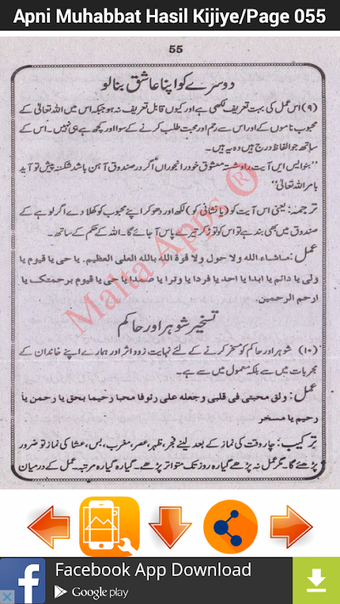 Apni Muhabbat Hasil Kijiye/Page 055
55
دوسرے کو اپنا عاشق بنا لو
(۹) اس عمل کی بہت تعریف لکھی ہے اور کیوں قابل تعریف نہ ہو جبکہ اس میں اللہ تعالیٰ کے
محبوب ناموں کے اور اس سے رحم اور محبت طلب کرنے کے سوا اور کچھ ہے ہی نہیں۔ اس کے
ساتھ جو الفاظ درج ہیں وہ یہ ہیں۔
''بنویس ایں آیت معشوق خود را بخوراں اگر در صندوق آہن باشد شکستہ پیش تو آید
بامر اللہ تعالیٰ''
ترجمہ: یعنی اس آیت کو (یا نشانی کو) لکھ اور دھو کر اپنے محبوب کو کھلا دے اگر لوہے کے
صندوق میں بھی بند ہے تو اس کو توڑ کر تیرے پاس آ جائے گا۔ اللہ کے حکم کے ساتھ۔
عمل: ماشاء الله ولا حول ولا قوة الا بالله العلى العظيم. يا حى يا قيوم يا
ولى يا دائم يا ابدا يا احد يا فردا يا وترا يا صمدا يا حى يا قيوم برحمتك يا
ارحم الرحمين.
Malta Apps ®
تسخیر شوہر اور حاکم
(۱۰) شوہر اور حاکم کو مسخر کرنے کے لئے نہایت زود اثر اور ہمارے اپنے خاندان کے
مجربات میں سے بلکہ معمول میں سے ہے۔
عمل: وثق محبتى فى قلبى وجعله على رئوفا محبا رحيما بحق يا رحمن يا
رحيم يا مسخر
ترکیب: چار وقت کی نماز کے بعد لینے فجر، ظہر، عصر، مغرب، بس، عشا کی نماز تو ضرور
پڑھے گا۔ مگر عمل نہ پڑھے گیارہ روز تک متواتر پڑھے۔ گیارہ گیارہ مرتبہ عمل کے درمیان
Facebook App Download
Google play